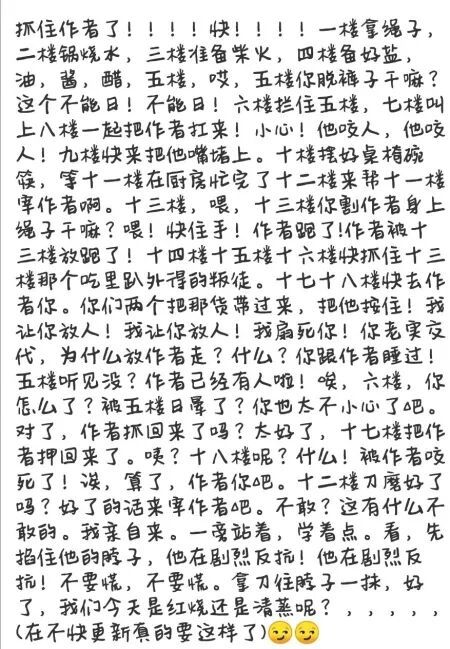 抓住作者了！！！！快！！！！一楼拿绳子，
二楼锅烧水，三楼准备柴火，四楼备好盐，
油，酱，醋，五楼，哎，五楼你脱裤子干嘛？
这个不能日！不能日！六楼拦住五楼，七楼叫
上八楼一起把作者扛来！小心！他咬人，他咬
人！九楼快来把他嘴堵上。十楼摆好桌椅碗
筷，等十一楼在厨房忙完了十二楼来帮十一楼
宰作者啊。十三楼，喂，十三楼你割作者身上
绳子干嘛？喂！快住手！作者跑了!作者被十
三楼放跑了！十四楼十五楼十六楼快抓住十三
楼那个吃里趴外得的叛徒。十七十八楼快去作
者你。你们两个把那货带过来，把他按住！我
让你放人！我让你放人！我扇死你！你老实交
代，为什么放作者走？什么？你跟作者睡过！
五楼听见没？作者已经有人啦！唉，六楼，你
怎么了？被五楼日晕了？你也太不小心了吧。
对了，作者抓回来了吗？太好了，十七楼把作
者押回来了。咦？十八楼呢？什么！被作者咬
死了！诶，算了，作者你吧。十二楼刀磨好了
吗？好了的话来宰作者吧。不敢？这有什么不
敢的。我亲自来。一旁站着，学着点。看，先
掐住他的脖子，他在剧烈反抗！他在剧烈反
抗！不要慌，不要慌。拿刀往脖子一抹，好
了，我们今天是红烧还是清蒸呢？，，，，，
(在不快更新真的要这样了)😏😏